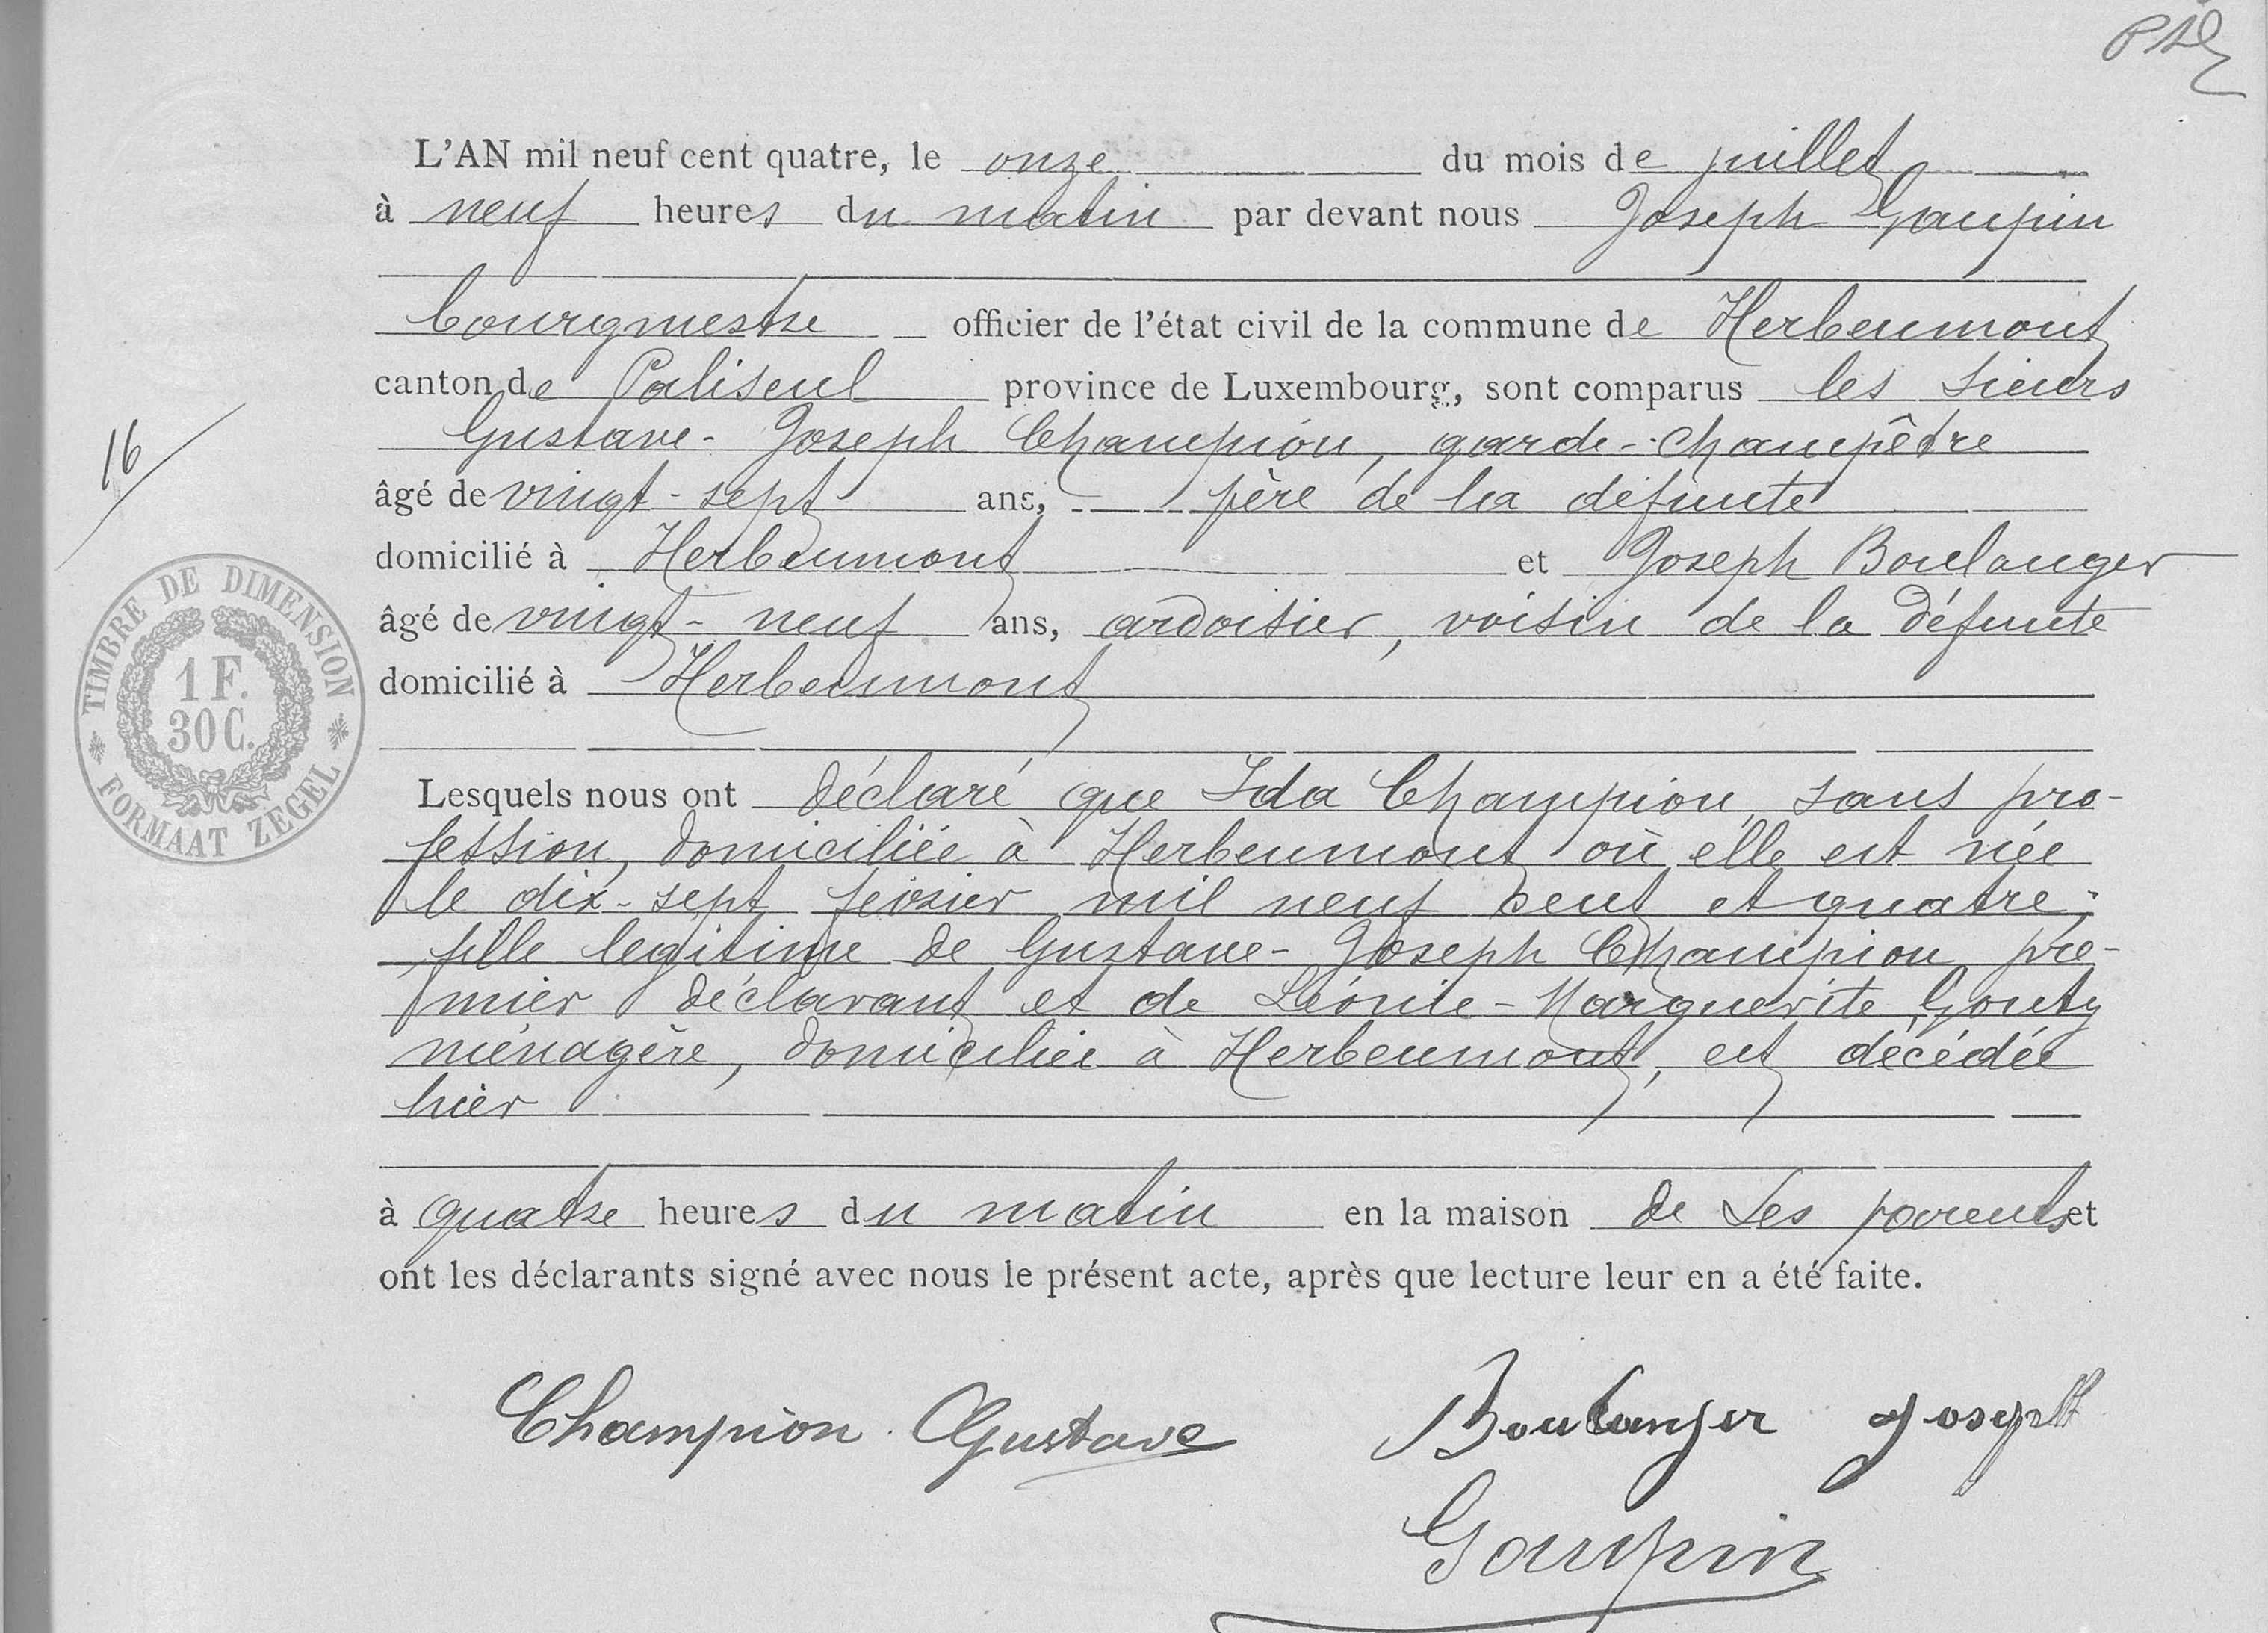 L'AN mil neuf cent quatre, le onze du mois de juillet
à neuf heures du matin par devant nous Joseph Gaupin
bourgmestre officier de l'état civil de la commune de Herbeumont
canton de Paliseul province de Luxembourg, sont comparus les sieurs
Gustave-Joseph Champion, garde-champêtre
16
âgé de vingt-sept ans, père de la défunte
domicilié à Herbeumont et Joseph Boulanger
âgé de vingt-neuf ans, ardoisier, voisin de la défunte
domicilié à Herbeumont
TIMBRE DE DIMENSION
1 F.
30 C.
FORMAAT ZEGEL
Lesquels nous ont déclaré que Ida Champion, sans pro-
fession, domiciliée à Herbeumont où elle est née
le dix-sept février mil neuf cent et quatre,
fille legitime de Gustave-Joseph Champion pre-
mier déclarant et de Léonie-Marguerite Gouty
ménagère, domiciliée à Herbeumont, est décédée
hier
à quatre heures du matin en la maison de ses parents et
ont les déclarants signé avec nous le présent acte, après que lecture leur en a été faite.
Champion Gustave Boulanger Joseph
Gaupin